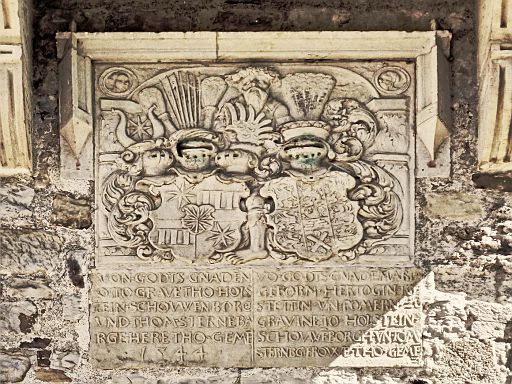 VON GODTS GNADEN
OTTO GRAVE THO HOL
STEIN SCHOUWENBORG
UND THOM STERNEBA
RGE HERE THO GEME
1544
VO GODS GNADE MARI
GEBORN HERTOGIN TO
STETTIN UN POMERN
GRAVINE TO HOLSTEIN
SCHOUWEBORG UN TOM
STERNBG FROWE THO GEME